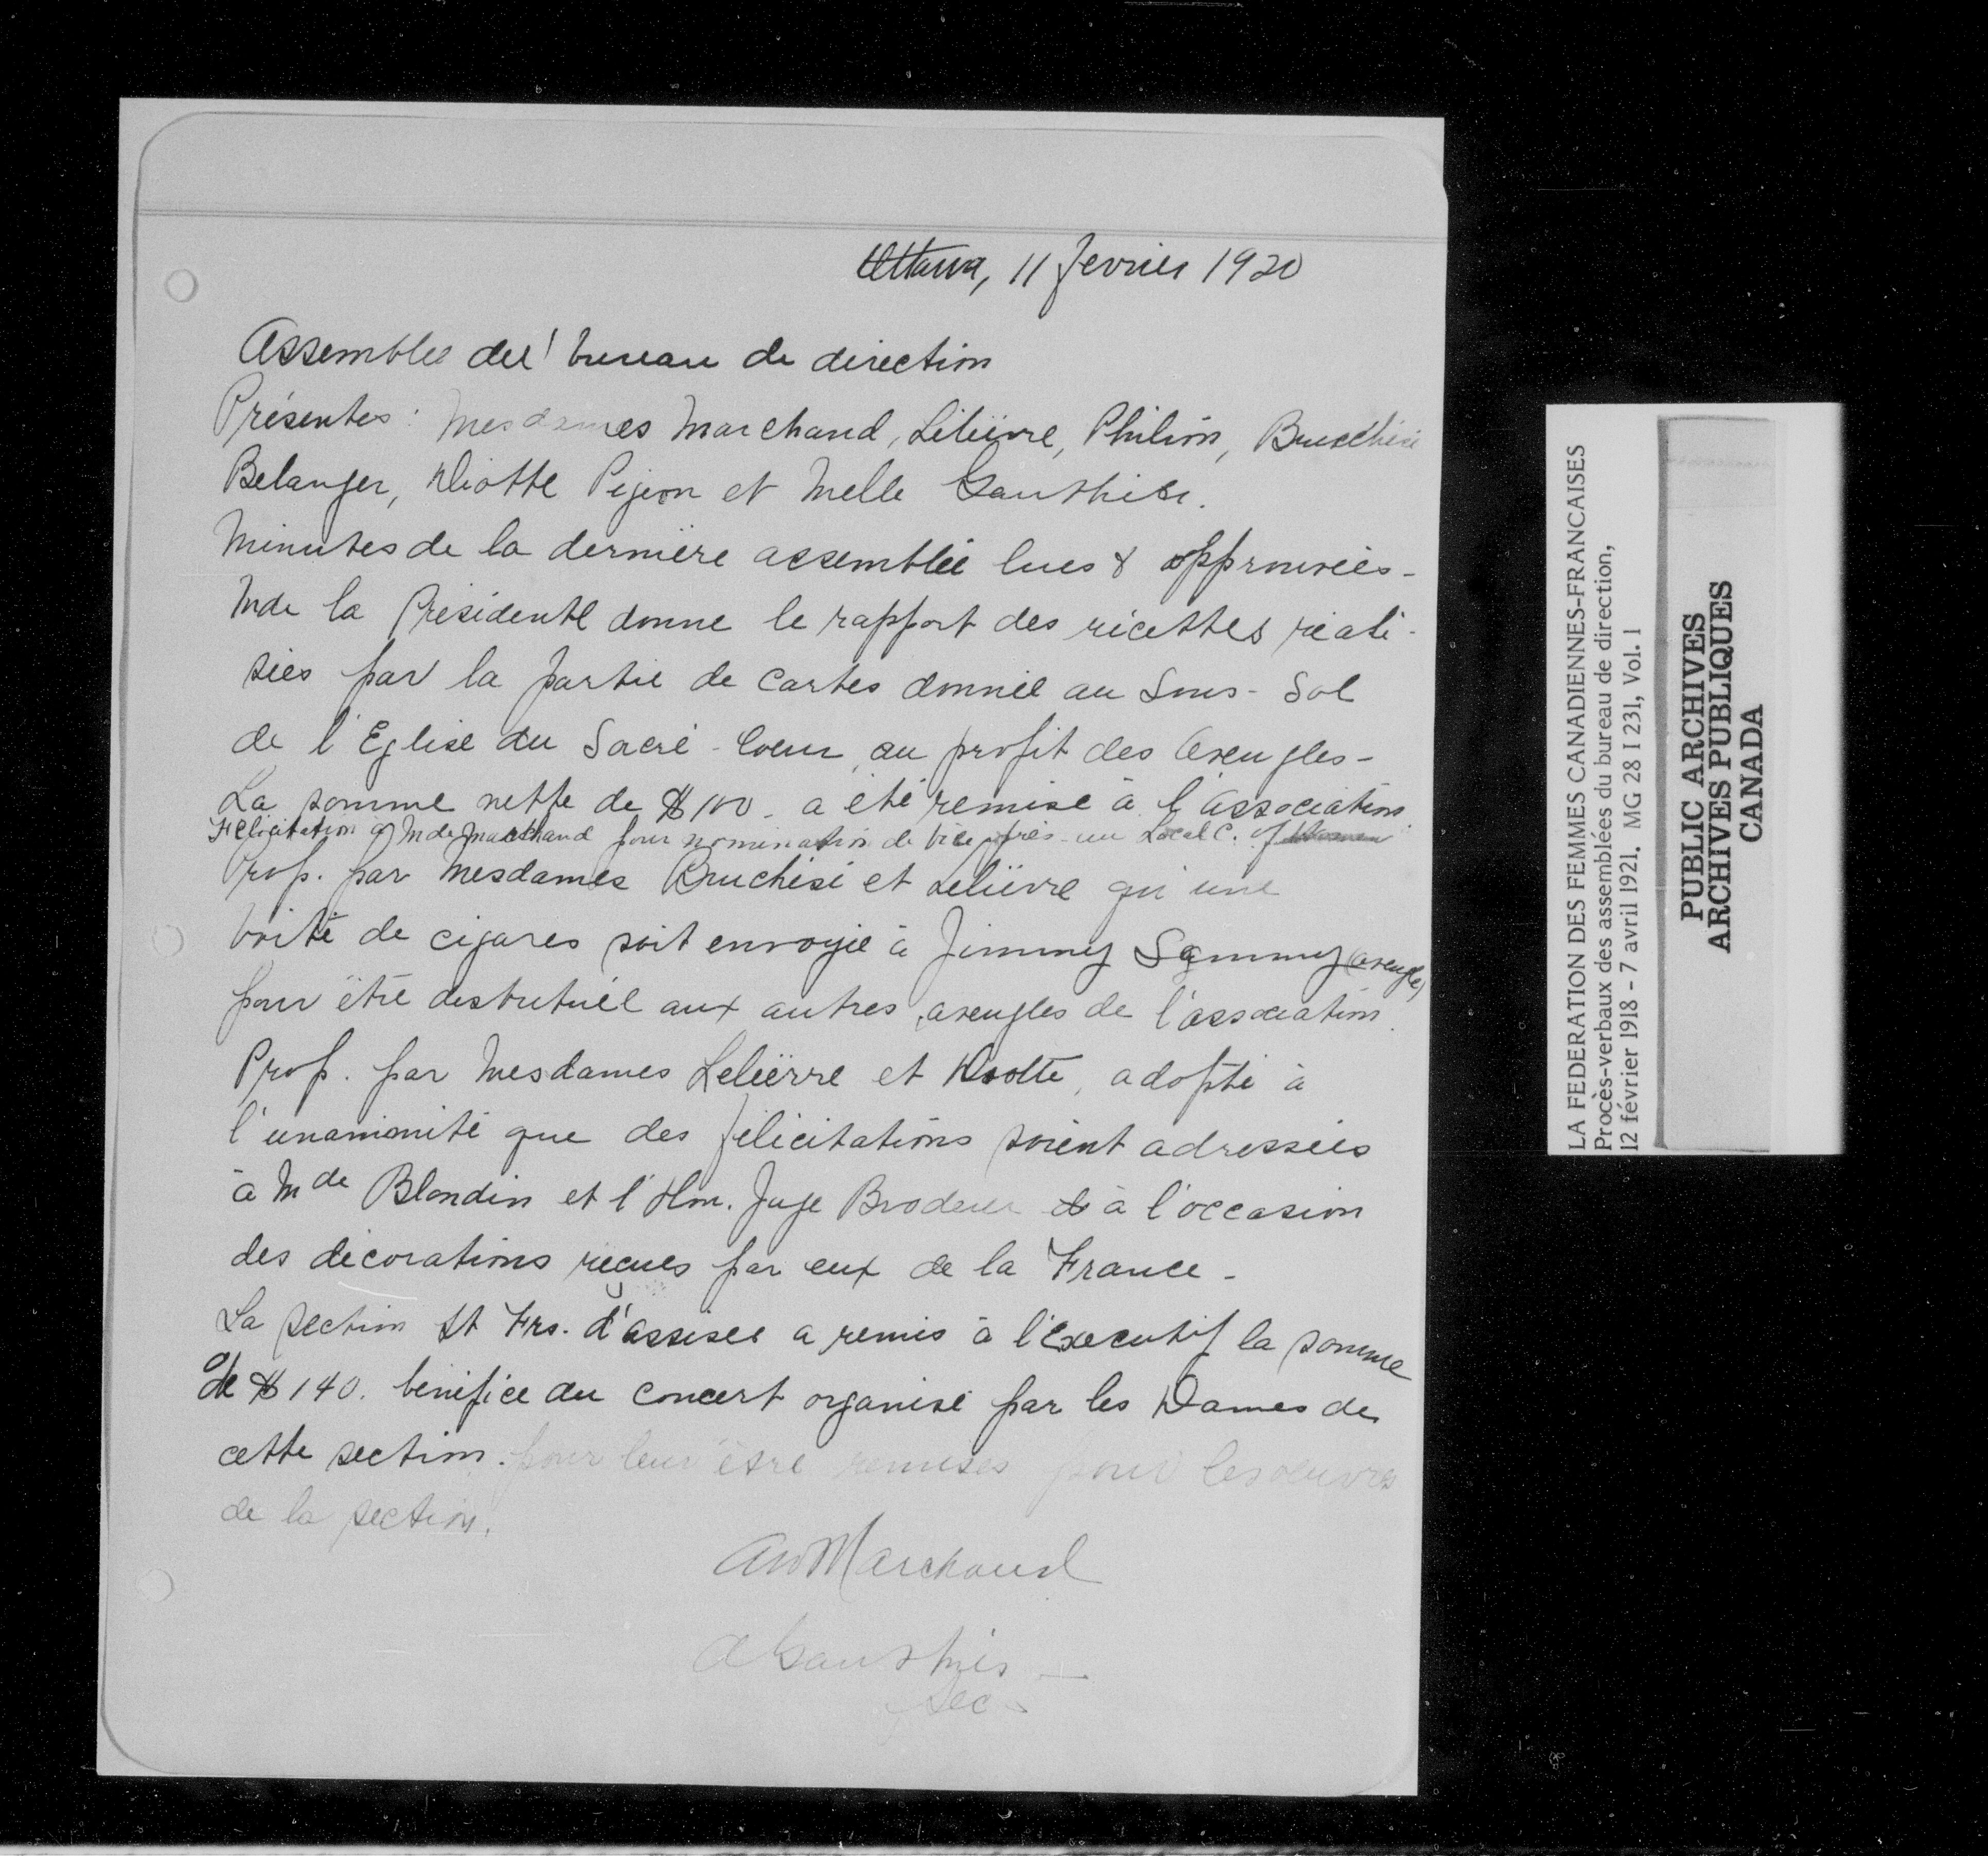 Ottawa, 11 fevrier 1920
Assemblee du bureau de direction
Présentes : Mesdames Marchand, Lelièvre, Philion, Bruchési
Belanger, Diotte Pigeon et Melle Gauthier.
Minutes de la dernière assemblée lues & approuvées -
Mde la Présidente donne le rapport des recettes réali-
sées par la partie de cartes donnée au Sous-Sol
de l'Eglise du Sacré-Coeur, au profit des Aveugles -
La somme nette de $100. a été remise à l'Association.
Félicitation à Mde Marchand pour nomination de vice prés. au Local C. of Women
Prop. par Mesdames Bruchési et Lelièvre qu'une
boite de cigares soit envoyée à Jimmy Sammy (aveugle)
pour être distribuée aux autres aveugles de l'association.
Prop. par Mesdames Lelièvre et Diotte, adopté à
l'unanimité que des félicitations soient adressées
à Mde Blondin et l'Hon. Juge Brodeur à l'occasion
des décorations reçues par eux de la France -
La section St Frs. d'assises a remis à l'Executif la somme
de $140. bénéfice du concert organisé par les Dames de
cette section. pour leur être remises pour les oeuvres
de la section.
AWMarchand
A Gauthier -
Sec -
LA FEDERATION DES FEMMES CANADIENNES-FRANCAISES
Procès-verbaux des assemblées du bureau de direction,
12 février 1918 - 7 avril 1921. MG 28 I 231, Vol. 1
PUBLIC ARCHIVES
ARCHIVES PUBLIQUES
CANADA